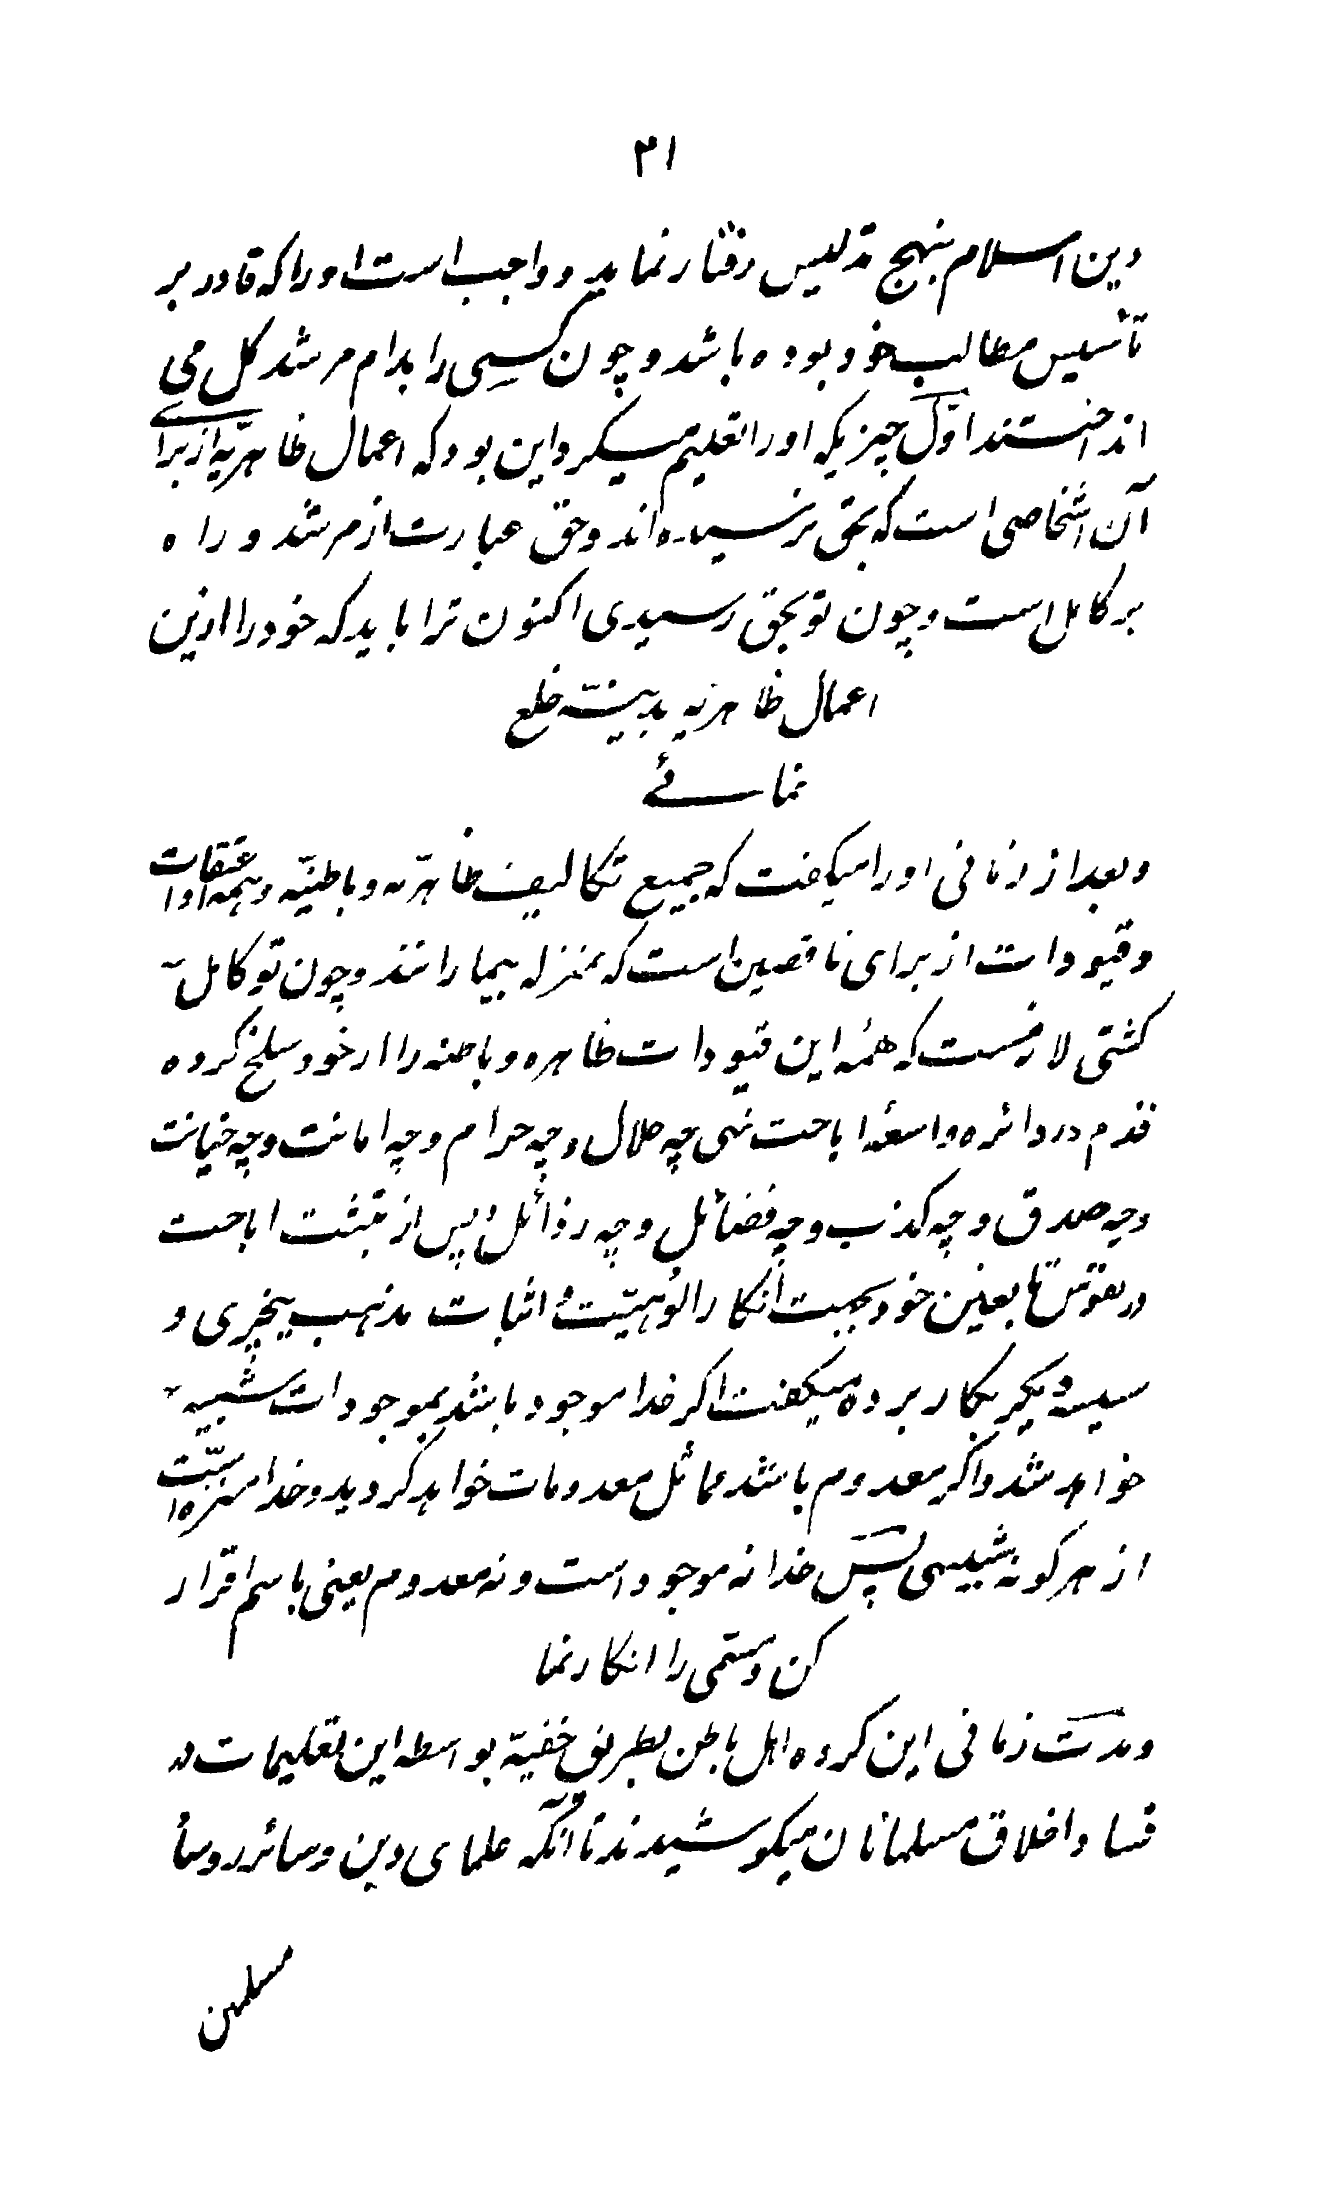 ۳۱
دین اسلام بنهج تدلیس رفتار نماید و واجب است او را که قادر بر
تأسیس مطالب خود بوده باشد و چون کسی را بدام مرشد کل می
انداختند اوّل چیزیکه او را تعلیم میکرد این بود که اعمال ظاهریّه از برای
آن اشخاصی است که بحق نرسیده‌اند و حق عبارت از مرشد و راه
بر کامل است و چون تو بحق رسیدی اکنون ترا باید که خود را ازین
اعمال ظاهریه بدنیّه خلع
نمائے
و بعد از زمانی او را میکفت که جمیع تکالیف ظاهرّیه و باطنیّه و همه اعتقادات
و قیودات از برای ناقصین است که بمنزله بیمارانند و چون تو کامل
کشتی لازمست که همهٔ این قیودات ظاهره و باطنه را از خود سلخ کرده
قدم در دائره واسعهٔ اباحت نهی چه حلال و چه حرام و چه امانت و چه خیانت
و چه صدق و چه کذب و چه فضائل و چه رذائل و پس از تثبت اباحت
در نفوس تابعین خود بجهت انکار الوُهیّت و اثبات مذهب نیچری و
سیسه دیکر بکار برده میکفت اکر خدا موجود باشد بموجودات شبیه
خواهد شد و اکر معدوم باشد مماثل معدومات خواهد کردید و خدا منزه است
از هر کونه شبیهی پس خدا نه موجود است و نه معدوم یعنی باسم اقرار
کن و مسمی را انکار نما
و مدت زمانی این کروه اهل باطن بطریق خفیّه بواسطه این تعلیمات در
فساد اخلاق مسلمانان میکوشیدند تا آنکه علمای دین و سائر روسأ
مسلمین